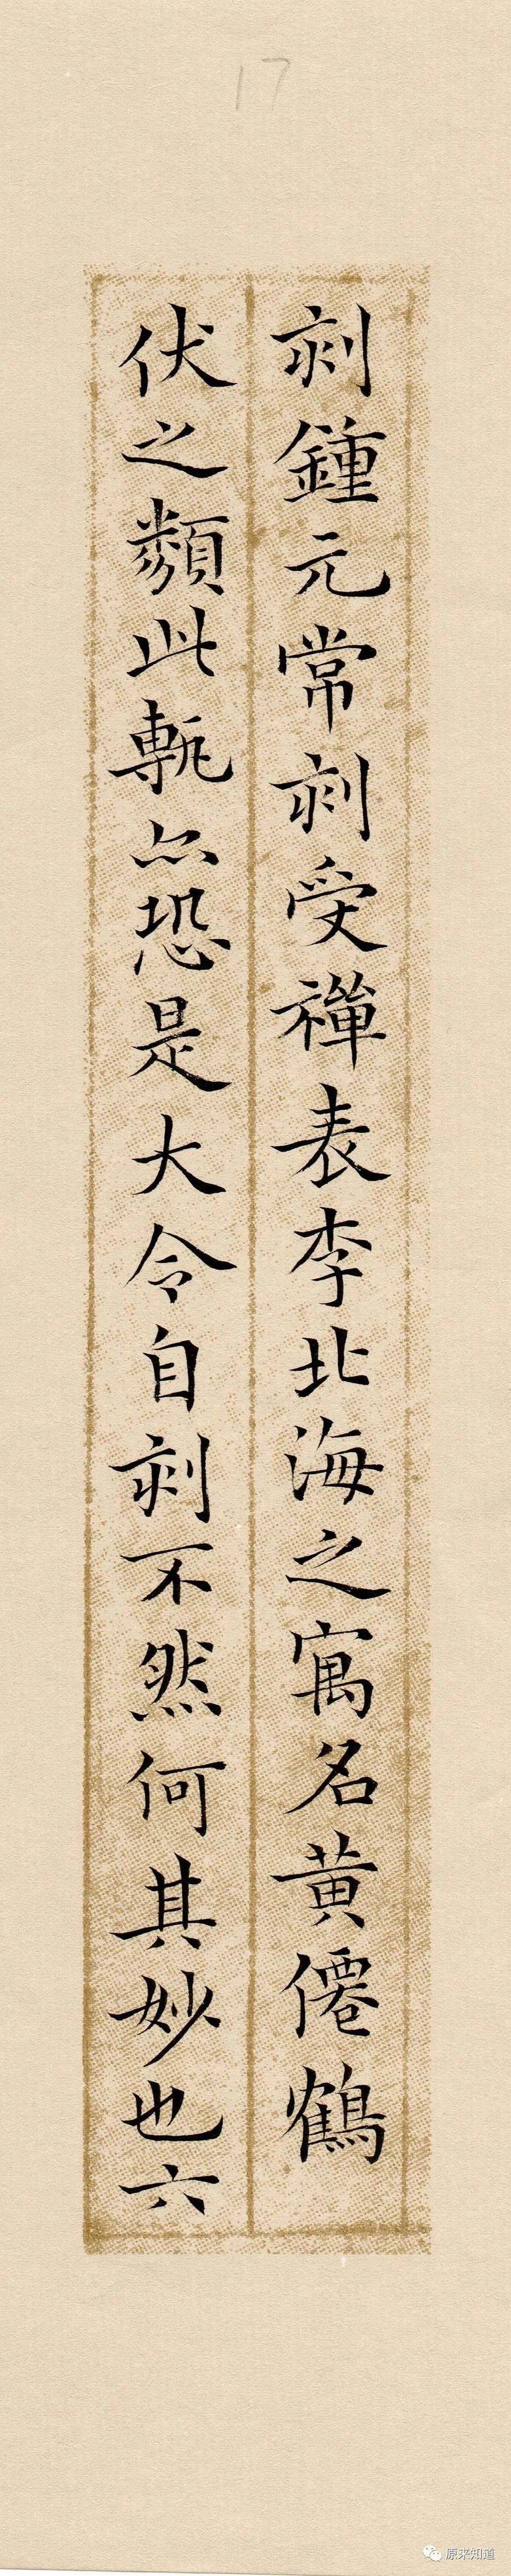 17
剡鍾元常剡受禪表李北海之寓名黄僊鶴
伏之類此甎亦恐是大令自剡不然何其妙也六
原来知道